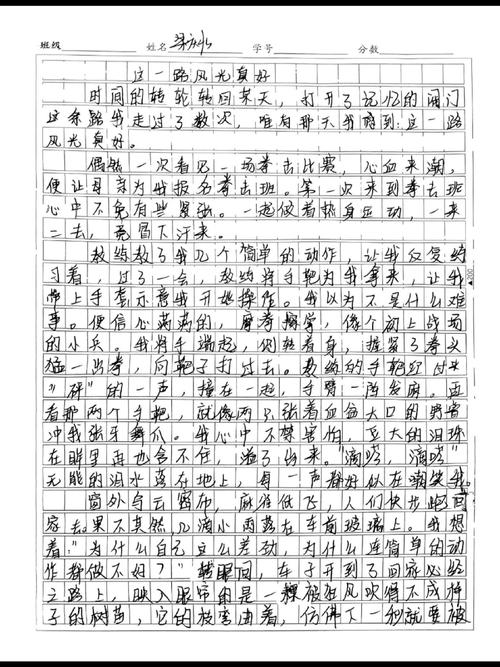 班级 姓名 学号 分数
这一路风光真好
时间的转轮转回某天，打开了记忆的闸门
这条路我走过了数次，唯有那天我感到：这一路
风光真好。
偶然一次看见一场拳击比赛，心血来潮，
便让母亲为我报名拳击班。第一次来到拳击班
心中不免有些紧张。一起做着热身运动，一来
二去，竟冒下汗来。
教练教了我几个简单的动作，让我反复练
习着，过了一会，教练将手靶为我拿来，让我
带上手套示意我开始操作。我以为不是什么难
事。便信心满满的，摩拳擦掌，像个初上战场
的小兵。我将手端起，侧转着身，握紧了拳头
猛一出拳，向靶子打过去。教练的手靶迎过来
“砰”的一声，撞在一起，手臂一阵发麻。再
看那两个手靶，就像两只张着血盆大口的野兽
冲我张牙舞爪。我心中不禁害怕，豆大的泪珠
在眼里再也含不住，溢了出来。“滴嗒，滴嗒”
无能的泪水落在地上，每一声都好似在嘲笑我。
窗外乌云密布，麻雀低飞，人们快步跑回
家去。果不其然，几滴小雨落在车窗玻璃上。我想
着：“为什么自己这么差劲，为什么连简单的动
作都做不好？”转眼间，车子开到了回家必经
之路上，映入眼帘的是一棵被狂风吹得不成样
子的树苗，它的枝弯曲着，仿佛下一秒就要被